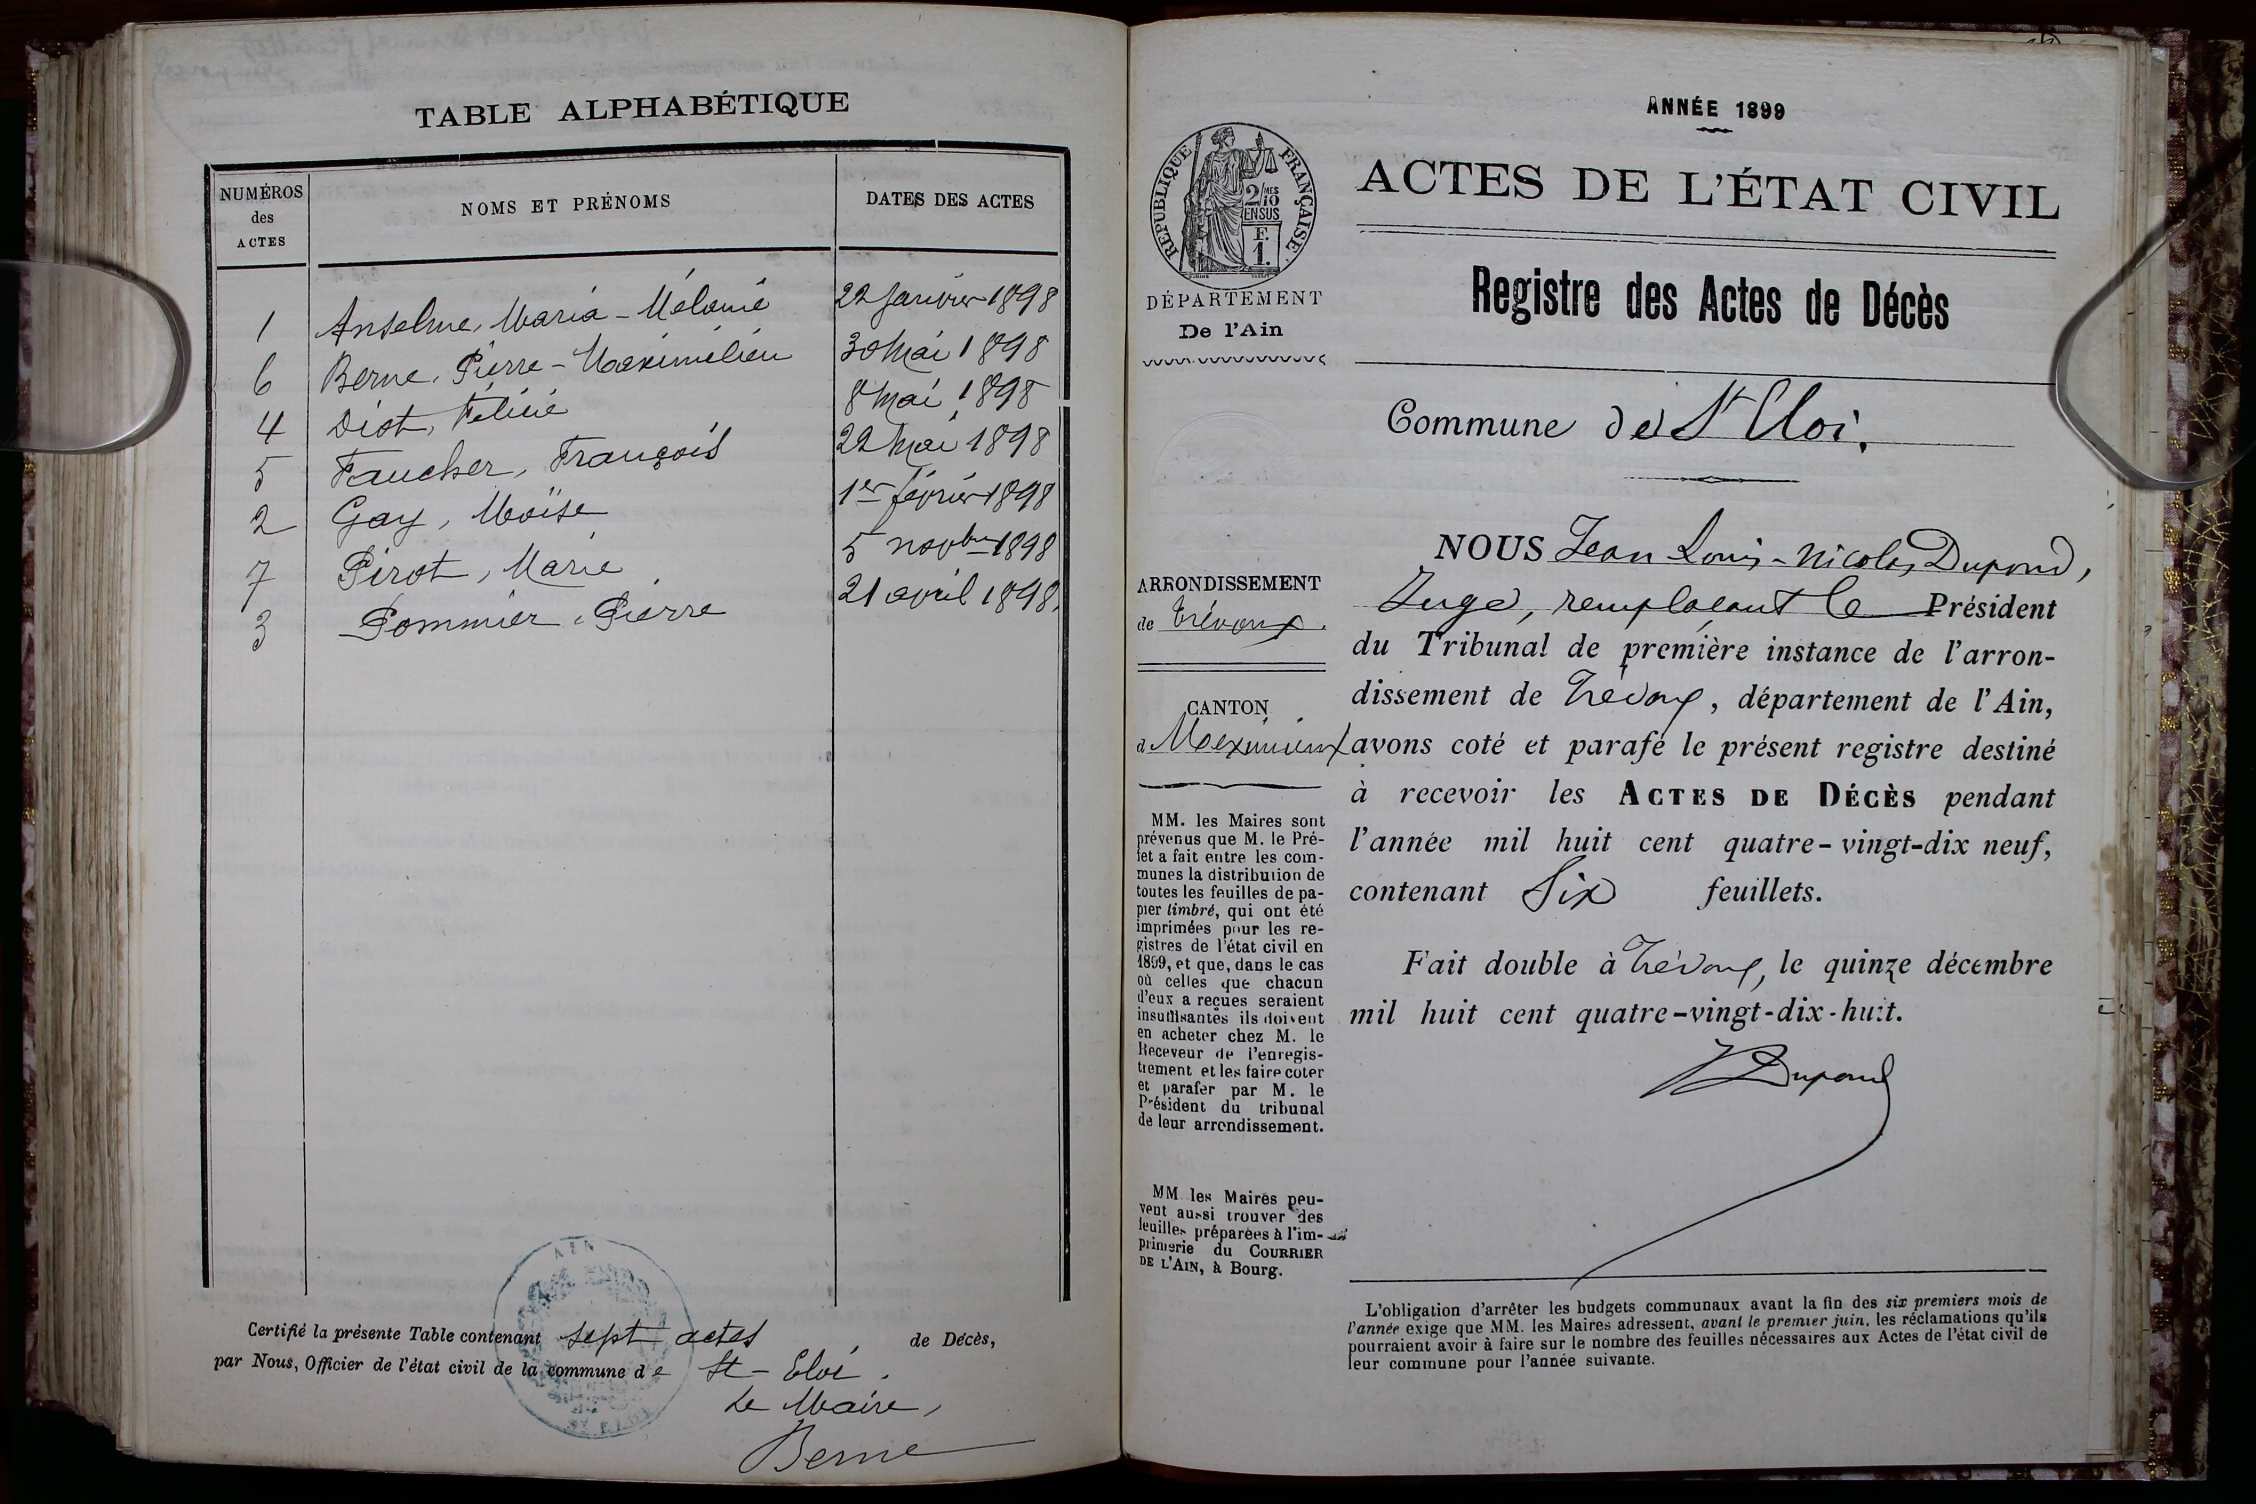 TABLE ALPHABÉTIQUE
NUMÉROS des ACTES
NOMS ET PRÉNOMS
DATES DES ACTES
1 Anselme, Maria-Mélanie 22 janvier 1898
6 Berne, Pierre-Maximilien 30 Mai 1898
4 Diot, Félicie 8 mai 1898
5 Faucher, François 22 Mai 1898
2 Gay, Moïse 1er février 1898
7 Pirot, Marie 5 novbre 1898
3 Pommier, Pierre 21 avril 1898.
Certifié la présente Table contenant sept actes de Décès,
par Nous, Officier de l'état civil de la commune de St-Eloi.
Le Maire,
Berne
AIN
ANNÉE 1899
RÉPUBLIQUE FRANÇAISE
2/10
MES
EN SUS
F.
1.
DÉPARTEMENT
De l'Ain
ARRONDISSEMENT
de Trévoux.
CANTON
d Meximieux
MM. les Maires sont
prévenus que M. le Pré-
fet a fait entre les com-
munes la distribution de
toutes les feuilles de pa-
pier timbré, qui ont été
imprimées pour les re-
gistres de l'état civil en
1899, et que, dans le cas
où celles que chacun
d'eux a reçues seraient
insuffisantes ils doivent
en acheter chez M. le
Receveur de l'enregis-
trement et les faire coter
et parafer par M. le
Président du tribunal
de leur arrondissement.
MM les Maires peu-
vent aussi trouver des
feuilles préparées à l'im-
primerie du COURRIER
DE L'AIN, à Bourg.
ACTES DE L'ÉTAT CIVIL
Registre des Actes de Décès
Commune de St Eloi.
NOUS Jean Louis-Nicolas Dupond,
Juge, remplaçant le Président
du Tribunal de première instance de l'arron-
dissement de Trévoux, département de l'Ain,
avons coté et parafé le présent registre destiné
à recevoir les ACTES DE DÉCÈS pendant
l'année mil huit cent quatre-vingt-dix neuf,
contenant Six feuillets.
Fait double à Trévoux, le quinze décembre
mil huit cent quatre-vingt-dix-huit.
Dupond
L'obligation d'arrêter les budgets communaux avant la fin des six premiers mois de
l'année exige que MM. les Maires adressent, avant le premier juin, les réclamations qu'ils
pourraient avoir à faire sur le nombre des feuilles nécessaires aux Actes de l'état civil de
leur commune pour l'année suivante.